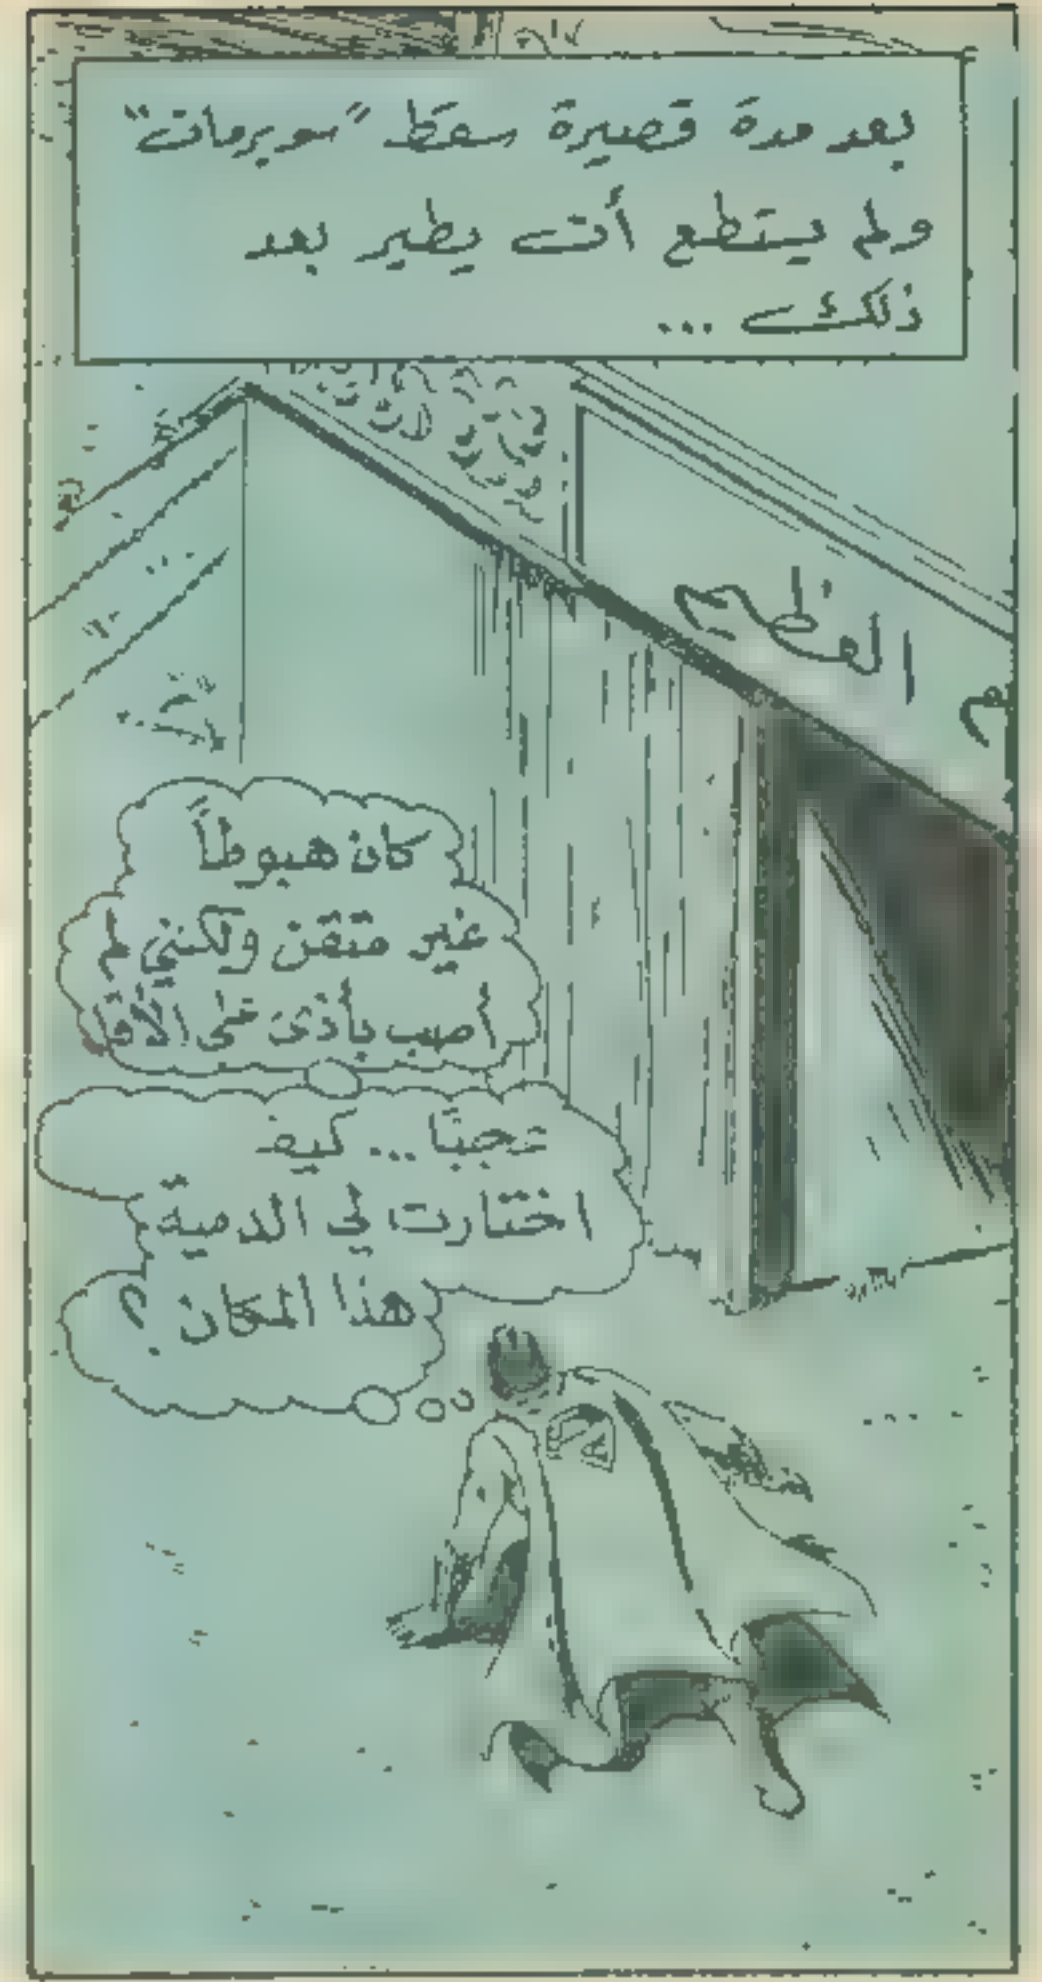 بعد مدة قصيرة سقط "سوبرمان"
ولم يستطع أن يطير بعد
ذلك ...
العظيم
م
كان هبوطاً
غير متقن ولكنني لم
أصب بأذى على الأقل
عجبًا ... كيف
اختارت لي الدمية
هذا المكان ؟